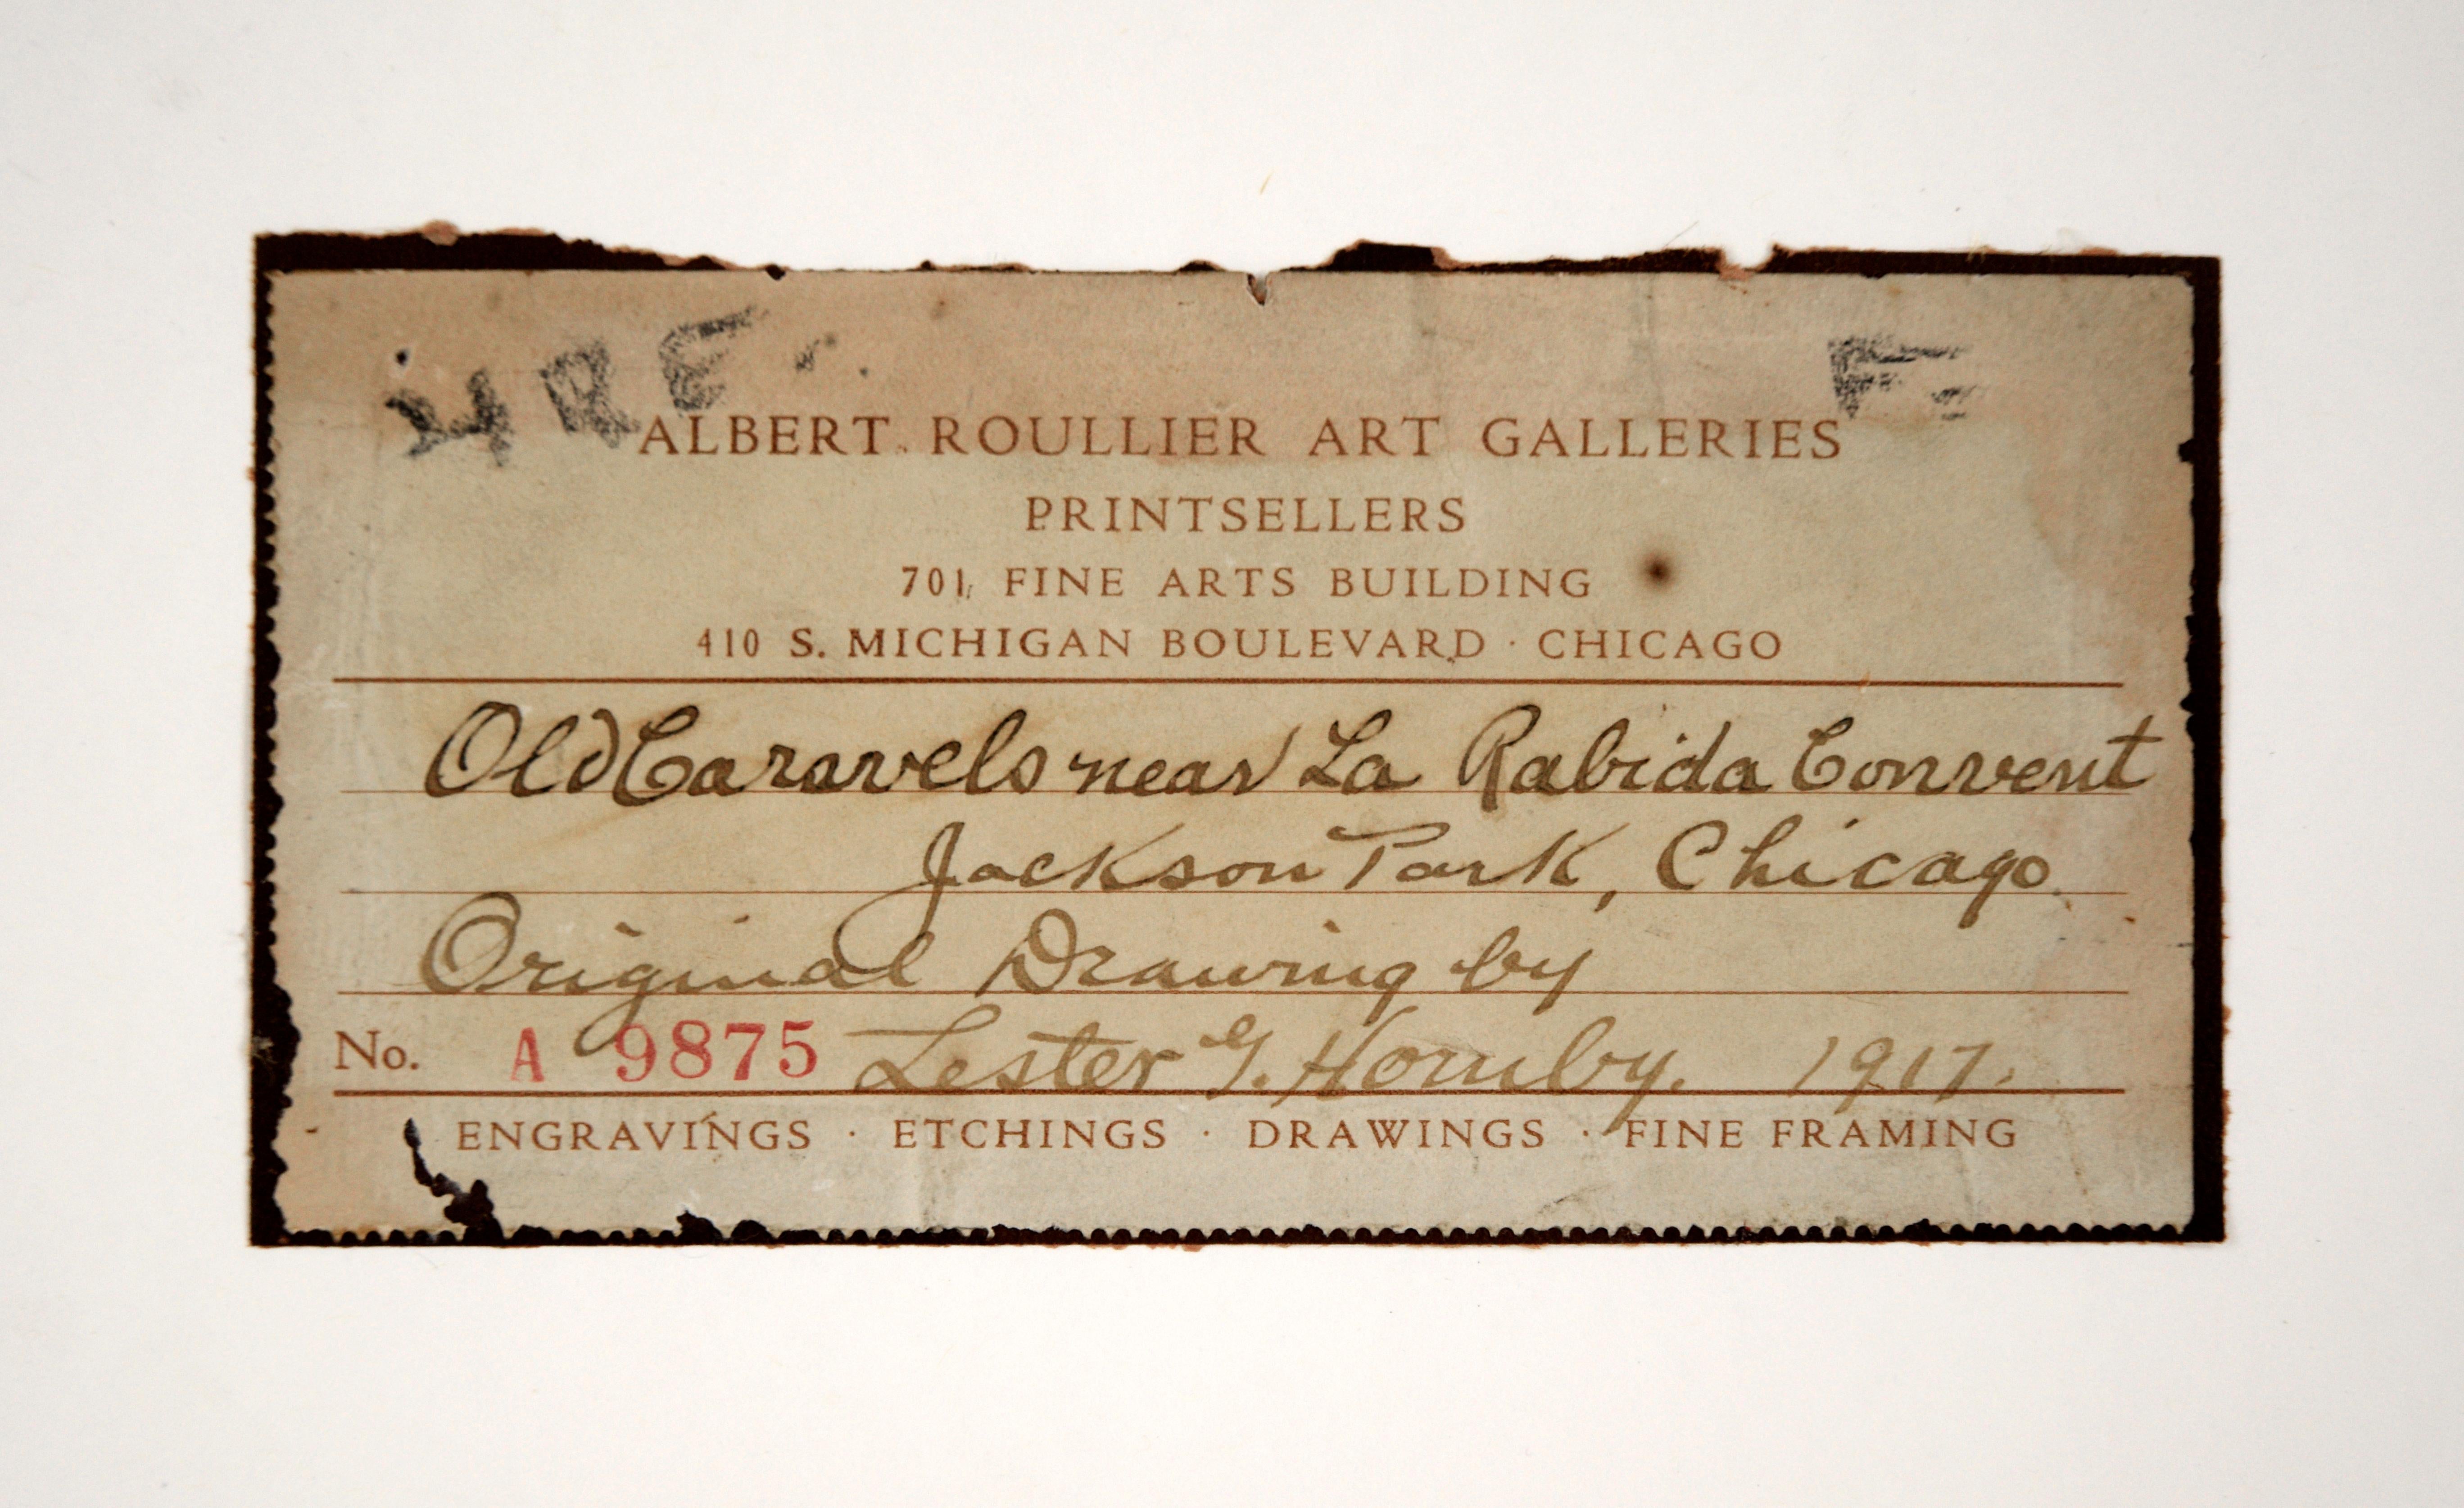 ALBERT ROULLIER ART GALLERIES
PRINTSELLERS
701 FINE ARTS BUILDING
410 S. MICHIGAN BOULEVARD · CHICAGO
Old Caravels near La Rabida Convent
Jackson Park, Chicago
Original Drawing by
No. A 9875 Lester G. Hornby. 1917.
ENGRAVINGS · ETCHINGS · DRAWINGS · FINE FRAMING